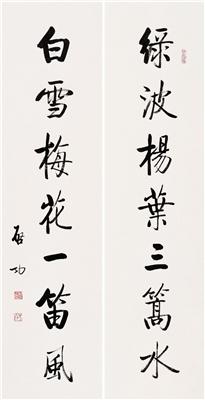 綠波楊葉三篙水
白雪梅花一笛風
啟功